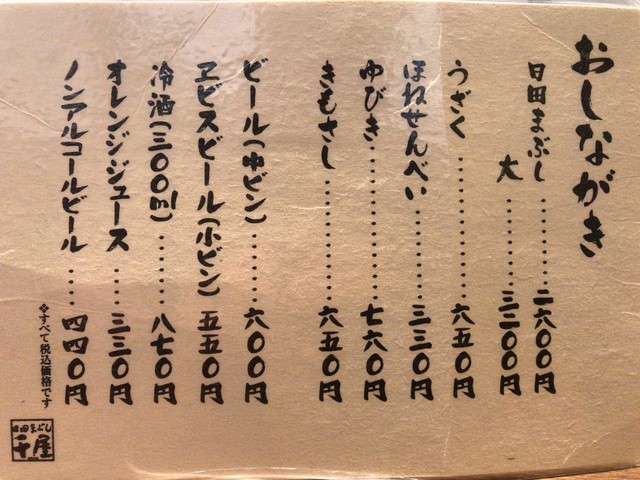 おしながき
日田まぶし‥‥‥二六〇〇円
大‥‥‥三二〇〇円
うざく‥‥‥六五〇円
ほねせんべい‥‥‥三三〇円
ゆびき‥‥‥七六〇円
きもさし‥‥‥六五〇円
ビール(中ビン)‥‥‥六〇〇円
ヱビスビール(小ビン)五五〇円
冷酒(三〇〇ml)‥‥‥八七〇円
オレンジジュース‥‥三三〇円
ノンアルコールビール‥‥四四〇円
※すべて税込価格です
日田まぶし
千屋